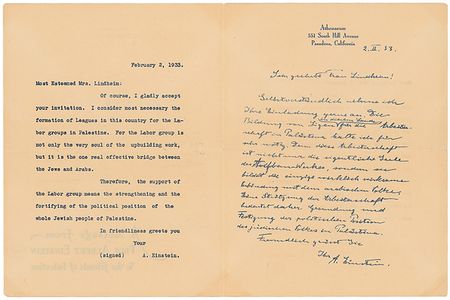 February 2, 1933.
Most Esteemed Mrs. Lindheim:
Of course, I gladly accept
your invitation. I consider most necessary the
formation of Leagues in this country for the La-
bor groups in Palestine. For the Labor group is
not only the very soul of the upbuilding work,
but it is the one real effective bridge between
the Jews and Arabs.
Therefore, the support of
the Labor group means the strengthening and the
fortifying of the political position of the
whole Jewish people of Palestine.
In friendliness greets you
Your
(signed) A. Einstein.
Athenaeum
551 South Hill Avenue
Pasadena, California
2. II. 33.
Sehr geehrte Frau Lindheim!
Selbstverständlich nehme ich
Ihre Einladung gerne an. Die
in diesem Lande
Bildung von Ligen für die Arbeiter-
schaft in Palästina halte ich für
sehr nötig. Denn diese Arbeiterschaft
ist nicht nur die eigentliche Seele
des Aufbauwerkes, sondern sie
bildet die einzige wirklich wirksame
Verbindung mit dem arabischen Volke.
Eine Stützung der Arbeiterschaft
bedeutet daher Gesundung und
Festigung der politischen Position
des jüdischen Volkes in Palästina.
Freundlich grüsst Sie
Ihr A. Einstein.